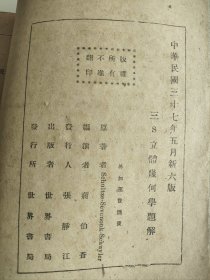 中華民國三十七年五月新六版
三S立體幾何學題解
外加運費匯費
原著者 Schultze-Sevenoak-Schuyler
編演者 蔣伯蒼
發行人 張靜江
出版者 世界書局
發行所 世界書局
版權所有
翻不准印